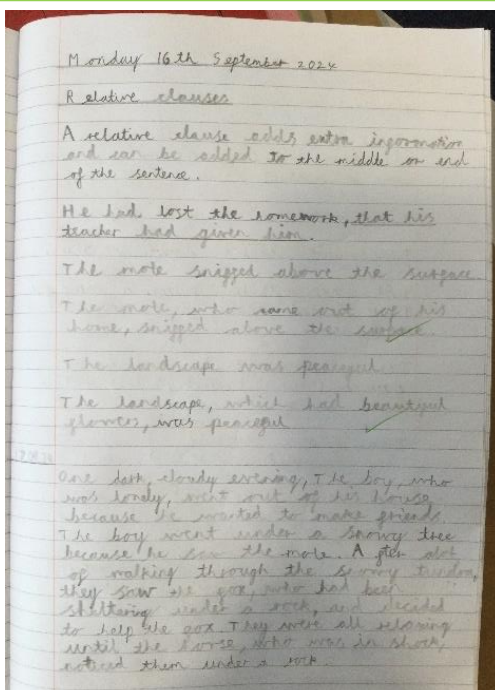 Monday 16th September 2024
Relative clauses
A relative clause adds extra information
and can be added to the middle or end
of the sentence.
He had lost the homework, that his
teacher had given him.
The mole sniffed above the surface.
The mole, who came out of his
home, sniffed above the surface.
The landscape was peaceful.
The landscape, which had beautiful
flowers, was peaceful
One dark, cloudy evening, The boy, who
was lonely, went out of his house
because he wanted to make friends.
The boy went under a snowy tree
because he saw the mole. After alot
of walking through the snowy tundra,
they saw the fox, who had been
sheltering under a rock, and decided
to help the fox. They were all relaxing
until the horse, who was in shock,
noticed them under a rock.